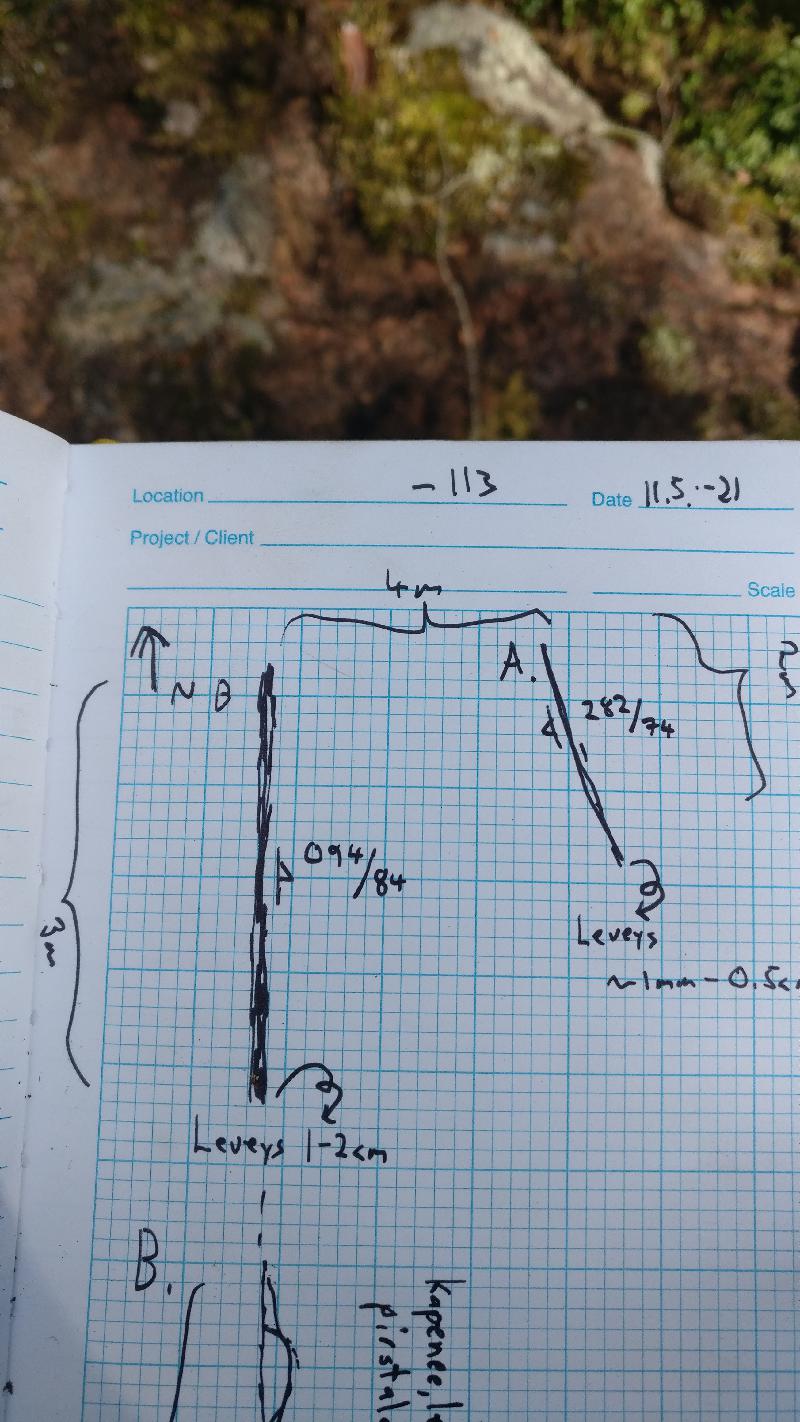 Location -113 Date 11.5.-21
Project / Client
Scale
4m
N B
A.
2m
282/74
094/84
3m
Leveys
~1mm - 0.5cm
Leveys 1-2cm
B.
Kapenee,